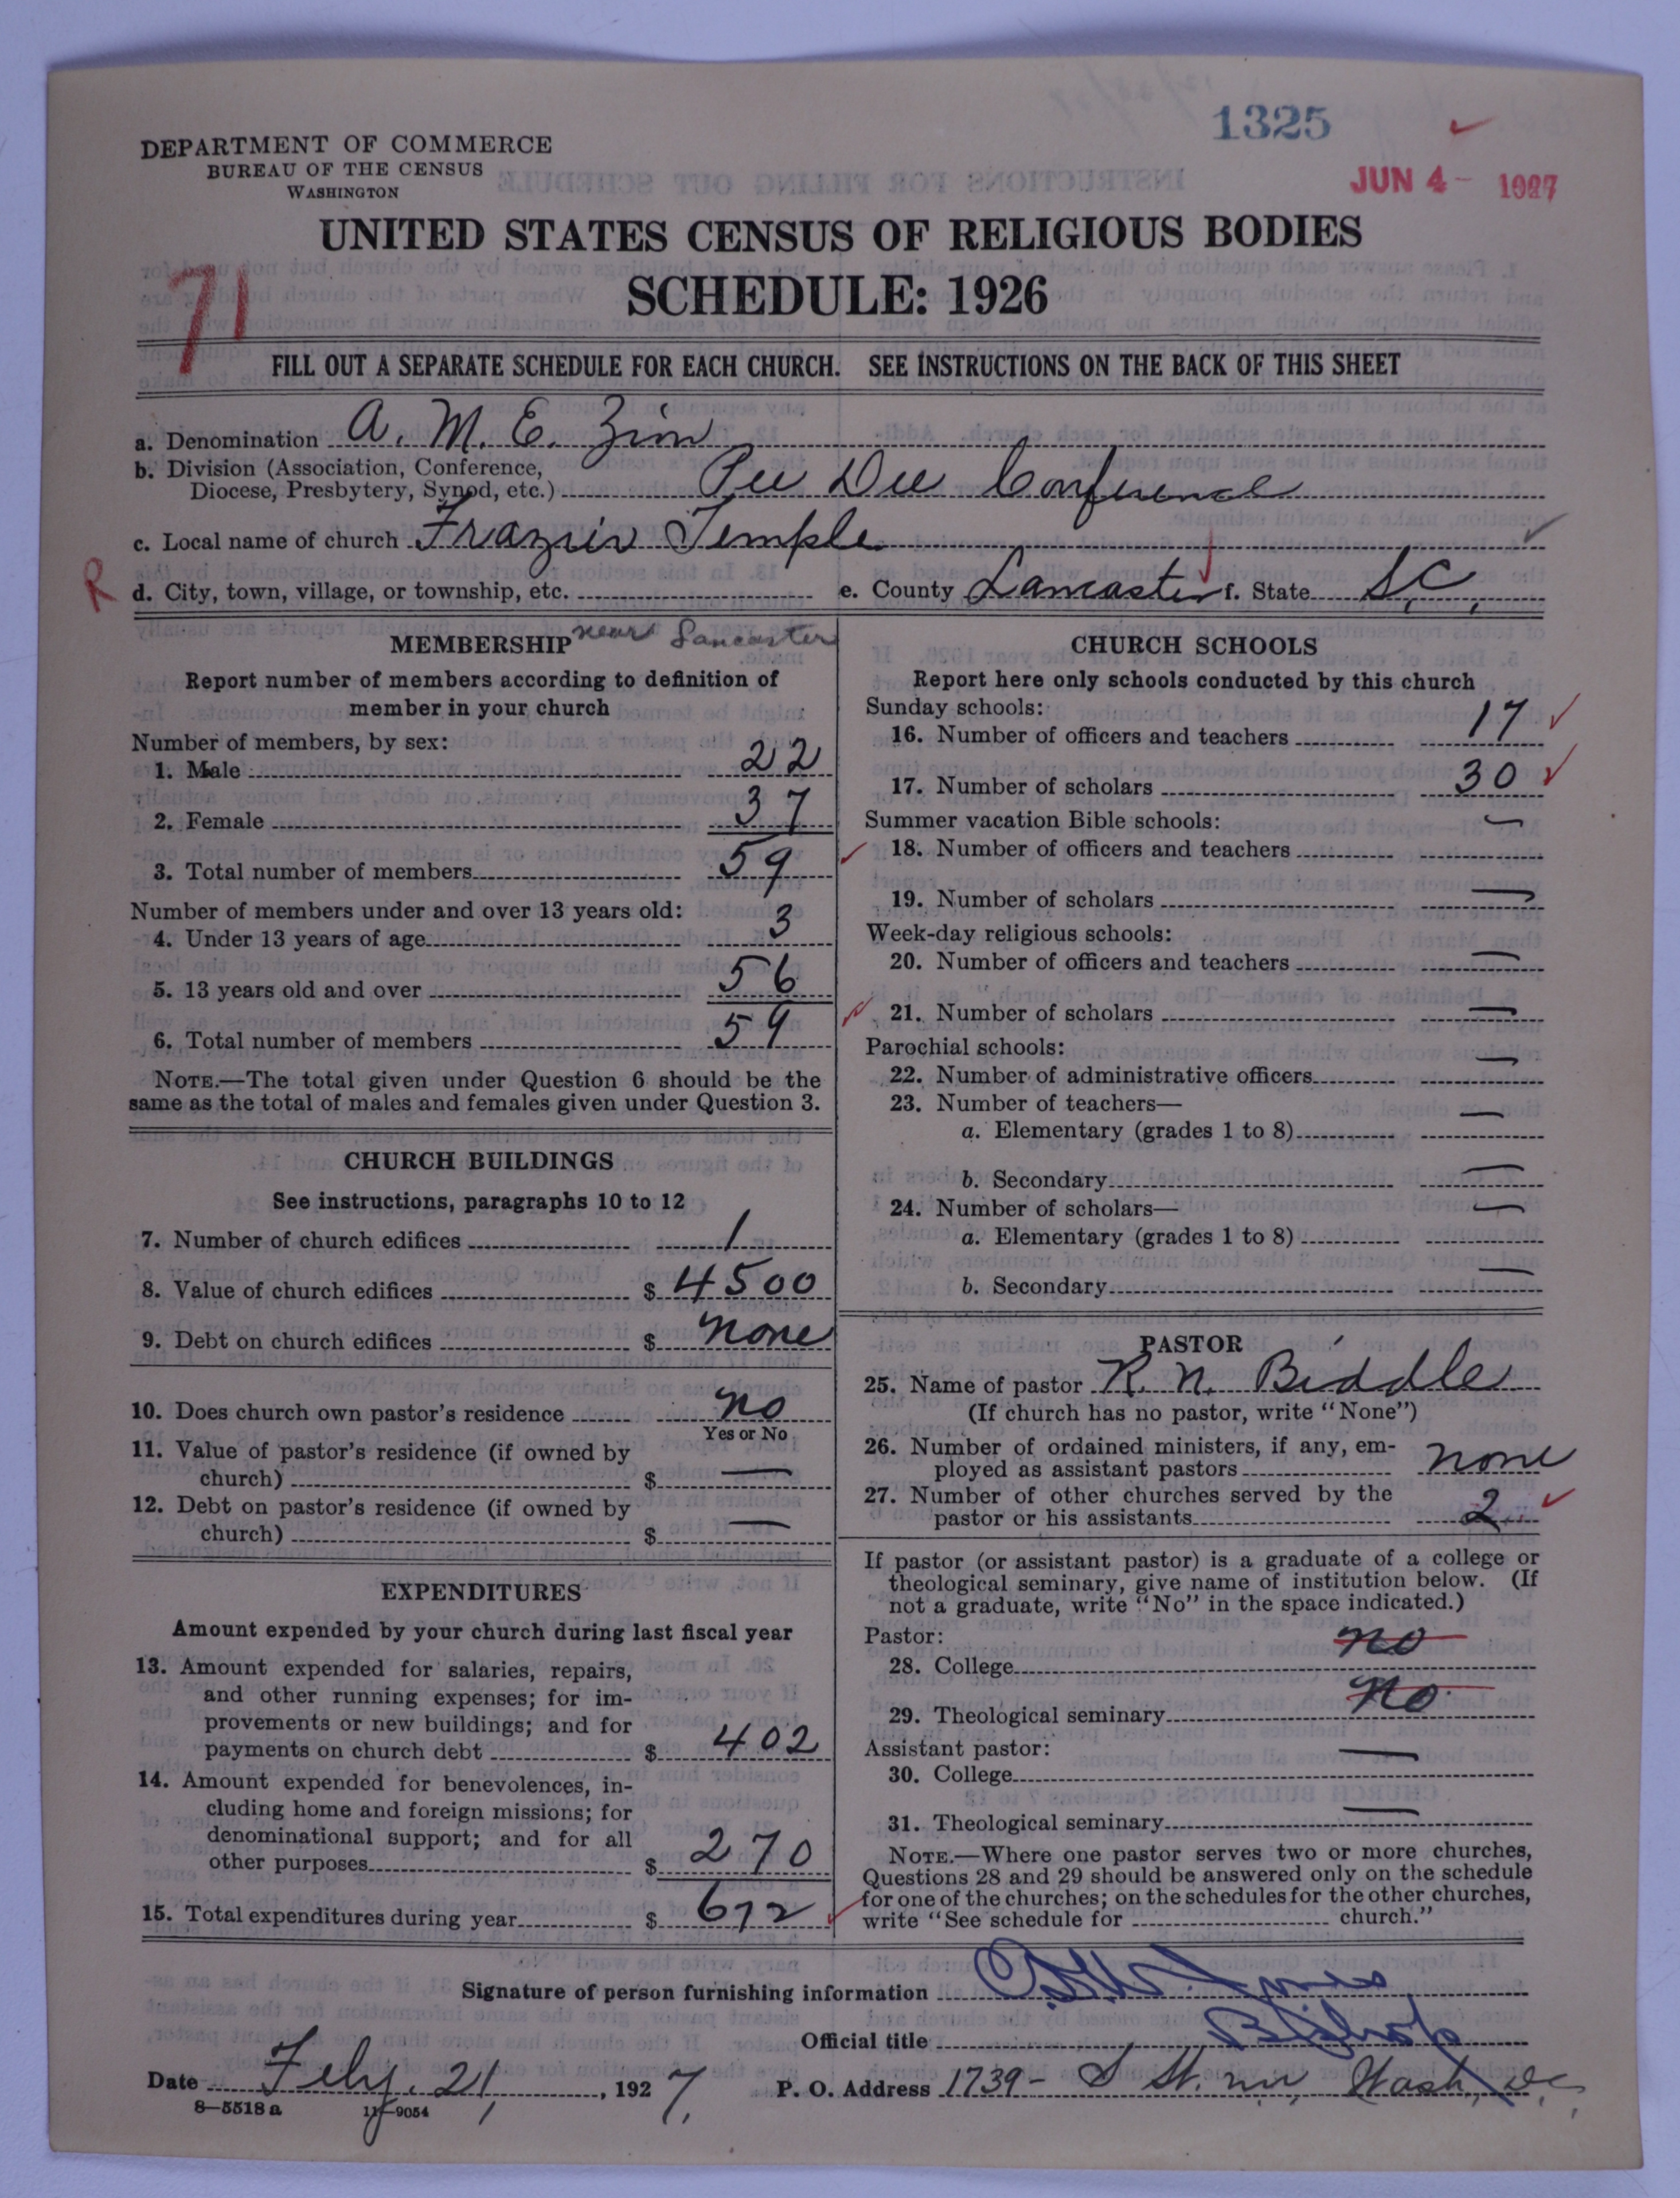 1325
JUN 4 - 1927
DEPARTMENT OF COMMERCE
BUREAU OF THE CENSUS
WASHINGTON
UNITED STATES CENSUS OF RELIGIOUS BODIES
SCHEDULE: 1926
71
FILL OUT A SEPARATE SCHEDULE FOR EACH CHURCH. SEE INSTRUCTIONS ON THE BACK OF THIS SHEET
a. Denomination A. M. E. Zion
b. Division (Association, Conference,
Diocese, Presbytery, Synod, etc.) Pee Dee Conference
c. Local name of church Frazier Temple
R d. City, town, village, or township, etc. e. County Lancaster f. State S.C.
near Lancaster
MEMBERSHIP
Report number of members according to definition of
member in your church
Number of members, by sex:
1. Male 22
2. Female 37
3. Total number of members 59
Number of members under and over 13 years old:
4. Under 13 years of age 3
5. 13 years old and over 56
6. Total number of members 59
NOTE.—The total given under Question 6 should be the
same as the total of males and females given under Question 3.
CHURCH BUILDINGS
See instructions, paragraphs 10 to 12
7. Number of church edifices 1
8. Value of church edifices $ 4500
9. Debt on church edifices $ none
10. Does church own pastor's residence no
Yes or No
11. Value of pastor's residence (if owned by
church) $ —
12. Debt on pastor's residence (if owned by
church) $ —
EXPENDITURES
Amount expended by your church during last fiscal year
13. Amount expended for salaries, repairs,
and other running expenses; for im-
provements or new buildings; and for
payments on church debt $ 402
14. Amount expended for benevolences, in-
cluding home and foreign missions; for
denominational support; and for all
other purposes $ 270
15. Total expenditures during year $ 672
CHURCH SCHOOLS
Report here only schools conducted by this church
Sunday schools:
16. Number of officers and teachers 17
17. Number of scholars 30
Summer vacation Bible schools:
18. Number of officers and teachers —
19. Number of scholars —
Week-day religious schools:
20. Number of officers and teachers —
21. Number of scholars —
Parochial schools:
22. Number of administrative officers —
23. Number of teachers—
a. Elementary (grades 1 to 8) —
b. Secondary —
24. Number of scholars—
a. Elementary (grades 1 to 8) —
b. Secondary —
PASTOR
25. Name of pastor R. N. Biddle
(If church has no pastor, write "None")
26. Number of ordained ministers, if any, em-
ployed as assistant pastors none
27. Number of other churches served by the
pastor or his assistants 2
If pastor (or assistant pastor) is a graduate of a college or
theological seminary, give name of institution below. (If
not a graduate, write "No" in the space indicated.)
Pastor:
28. College no
29. Theological seminary no
Assistant pastor:
30. College —
31. Theological seminary —
NOTE.—Where one pastor serves two or more churches,
Questions 28 and 29 should be answered only on the schedule
for one of the churches; on the schedules for the other churches,
write "See schedule for church."
Signature of person furnishing information Jones
Official title Bishop
Date Feby. 21, 1927. P. O. Address 1739 - S St. nw, Wash, D.C.
8—5518 a 11—9054